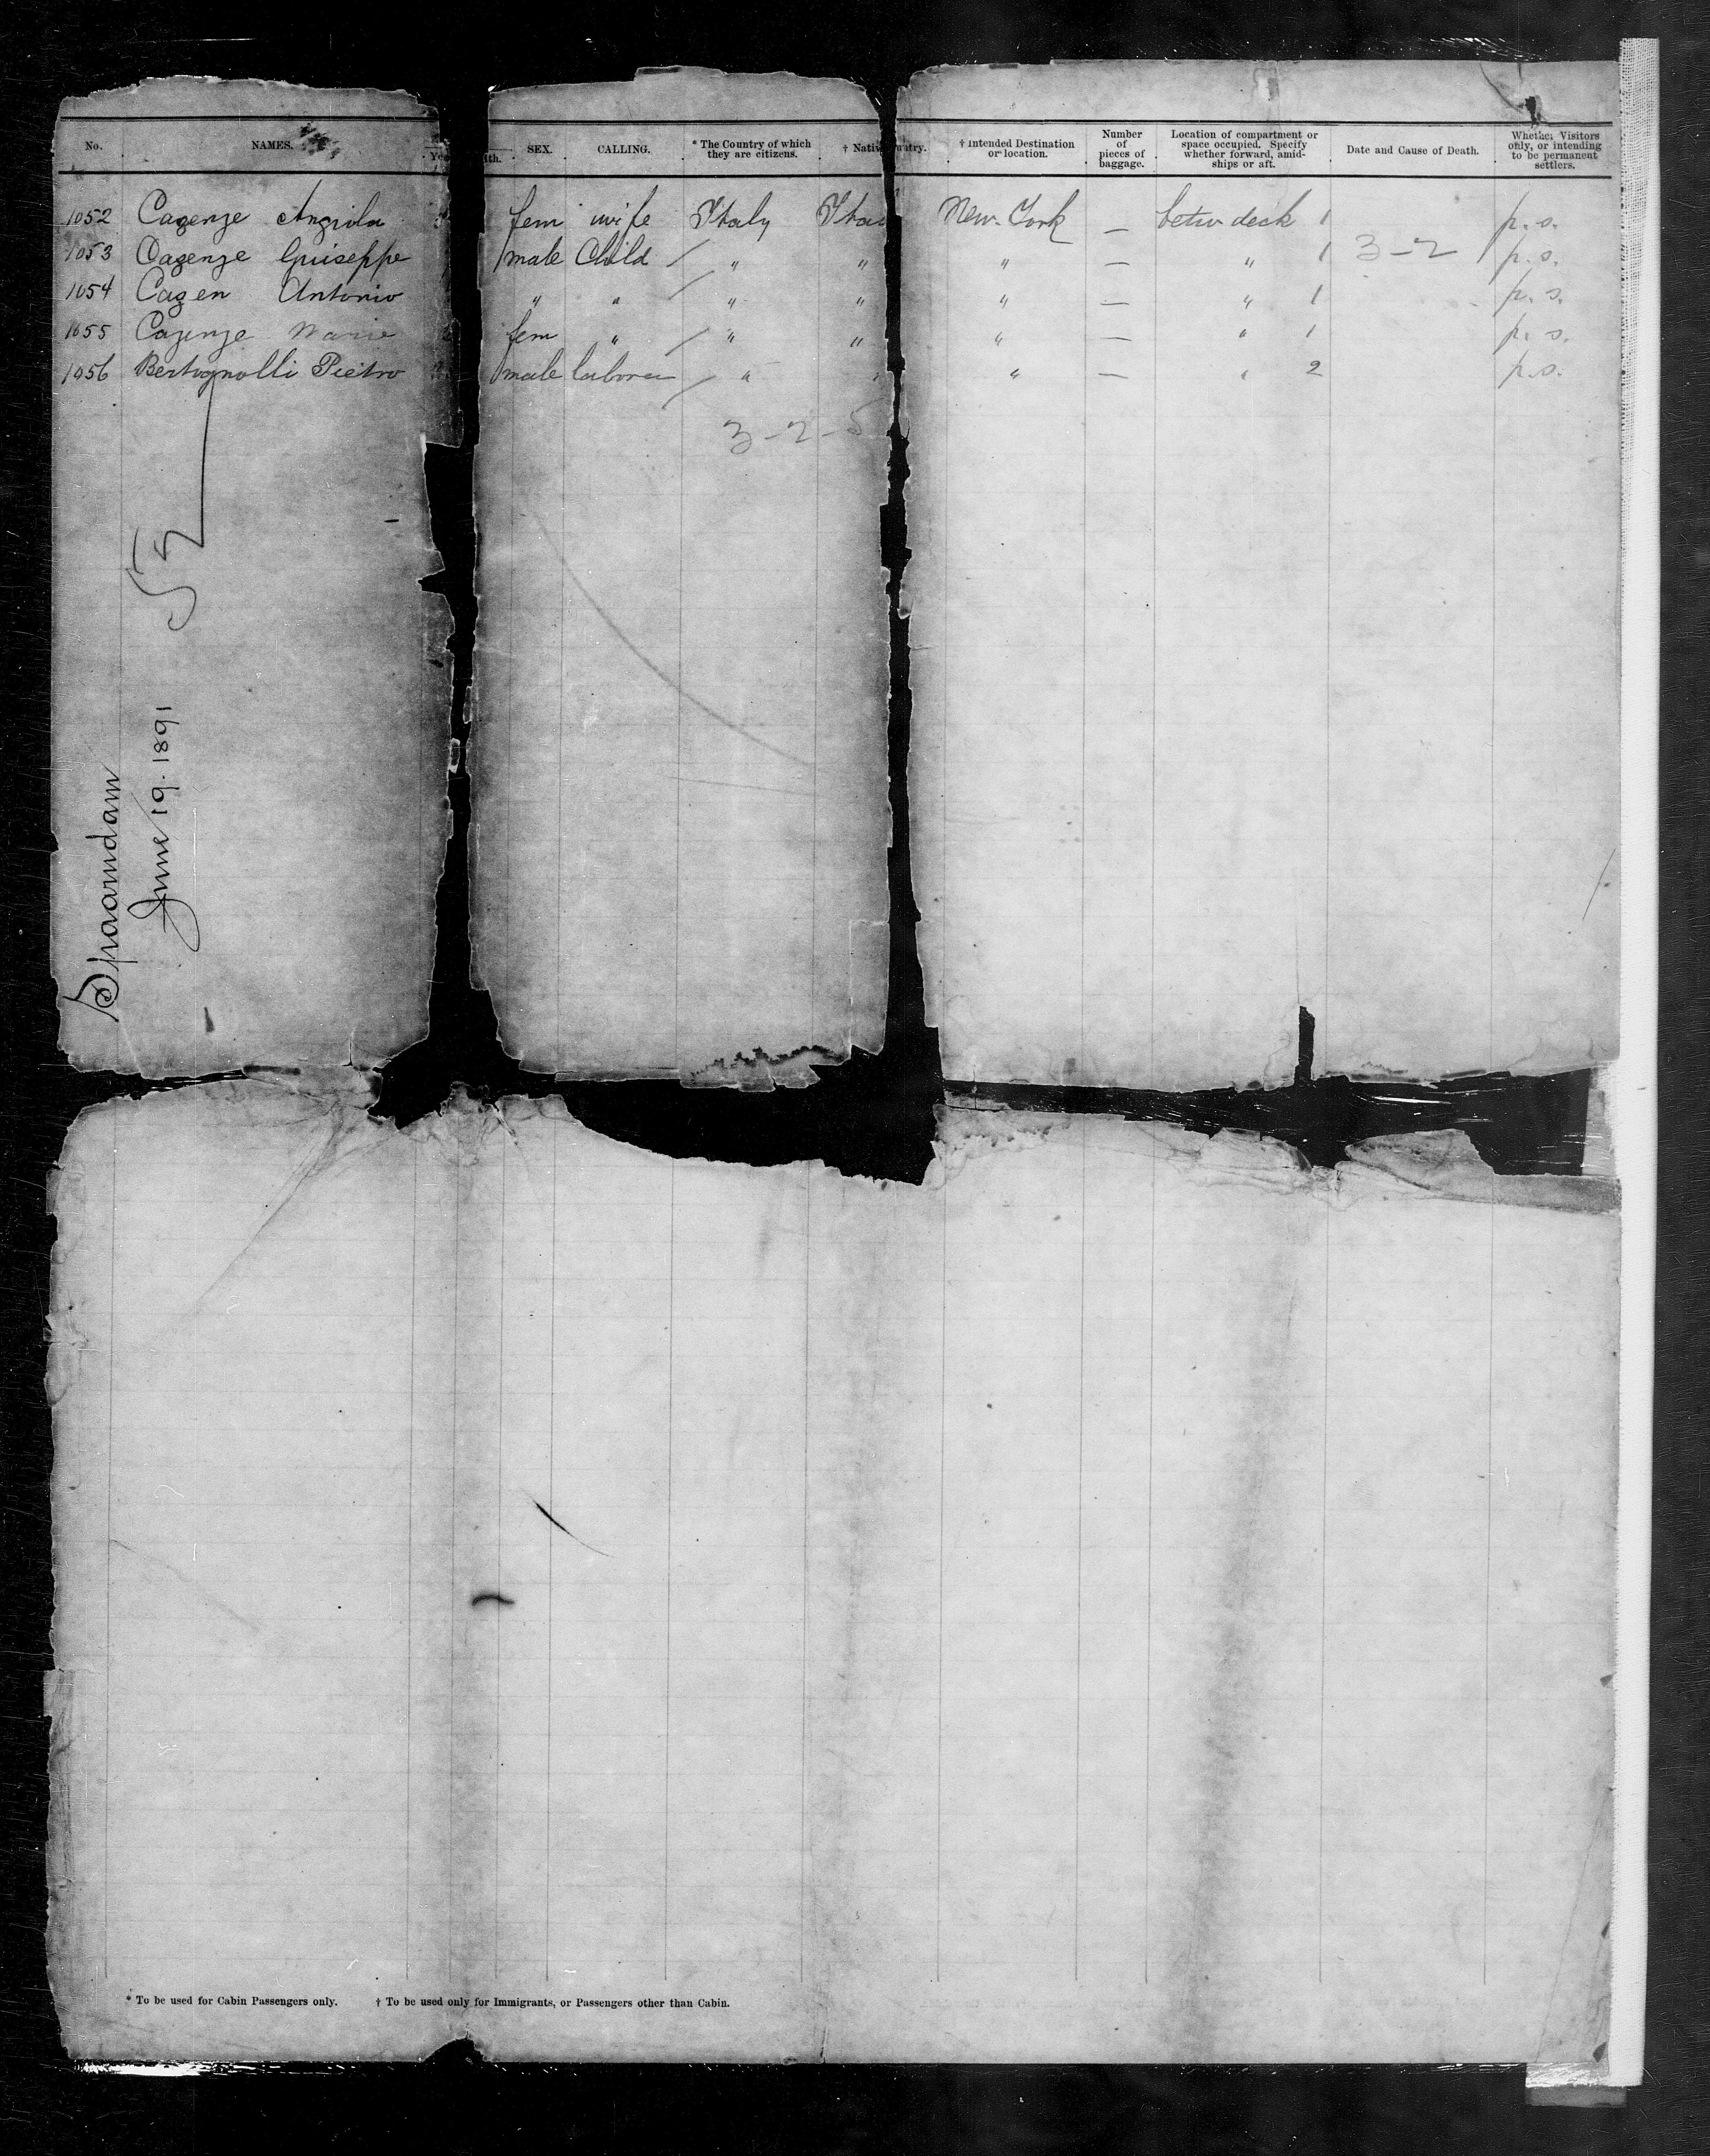 No. NAMES. SEX. CALLING. * The Country of which they are citizens. † Intended Destination or location. Number of pieces of baggage. Location of compartment or space occupied. Specify whether forward, amidships or aft. Date and Cause of Death. Whether Visitors only, or intending to be permanent settlers.
1052 Cazenze Angiola fem wife Italy New-York — betw deck 1 p. s.
1053 Cazenze Guiseppe male Child / " " " — " 1 3-2 p. s.
1054 Cazen Antonio " " / " " " — " 1 p. s.
1055 Cazenze Marie fem " / " " " — " 1 p. s.
1056 Bertognolli Pietro male laborer / " " " — " 2 p.s.
3-2-5
57
Spaarndam
June 19-1891
* To be used for Cabin Passengers only. † To be used only for Immigrants, or Passengers other than Cabin.